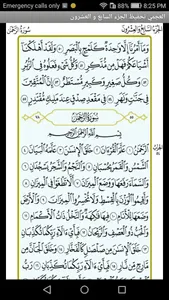 Emergency calls only
8:25 PM
العجمي تحفيظ الجزء السابع و العشرون
الجزء السابع والعشرون
سورة الرحمن
وَمَا أَمْرُنَا إِلَّا وَاحِدَةٌ كَلَمْحٍ بِالْبَصَرِ ۝ وَلَقَدْ أَهْلَكْنَا
أَشْيَاعَكُمْ فَهَلْ مِن مُّدَّكِرٍ ۝ وَكُلُّ شَيْءٍ فَعَلُوهُ فِي الزُّبُرِ
۝ وَكُلُّ صَغِيرٍ وَكَبِيرٍ مُّسْتَطَرٌ ۝ إِنَّ الْمُتَّقِينَ فِي جَنَّاتٍ
وَنَهَرٍ ۝ فِي مَقْعَدِ صِدْقٍ عِندَ مَلِيكٍ مُّقْتَدِرٍ ۝
سورة الرحمن
بِسْمِ اللَّهِ الرَّحْمَٰنِ الرَّحِيمِ
الرَّحْمَٰنُ ۝ عَلَّمَ الْقُرْآنَ ۝ خَلَقَ الْإِنسَانَ ۝ عَلَّمَهُ
الْبَيَانَ ۝ الشَّمْسُ وَالْقَمَرُ بِحُسْبَانٍ ۝ وَالنَّجْمُ وَالشَّجَرُ يَسْجُدَانِ
۝ وَالسَّمَاءَ رَفَعَهَا وَوَضَعَ الْمِيزَانَ ۝ أَلَّا تَطْغَوْا فِي
الْمِيزَانِ ۝ وَأَقِيمُوا الْوَزْنَ بِالْقِسْطِ وَلَا تُخْسِرُوا الْمِيزَانَ
۝ وَالْأَرْضَ وَضَعَهَا لِلْأَنَامِ ۝ فِيهَا فَاكِهَةٌ وَالنَّخْلُ ذَاتُ الْأَكْمَامِ
۝ وَالْحَبُّ ذُو الْعَصْفِ وَالرَّيْحَانُ ۝ فَبِأَيِّ آلَاءِ رَبِّكُمَا تُكَذِّبَانِ
۝ خَلَقَ الْإِنسَانَ مِن صَلْصَالٍ كَالْفَخَّارِ ۝ وَخَلَقَ
الْجَانَّ مِن مَّارِجٍ مِّن نَّارٍ ۝ فَبِأَيِّ آلَاءِ رَبِّكُمَا تُكَذِّبَانِ